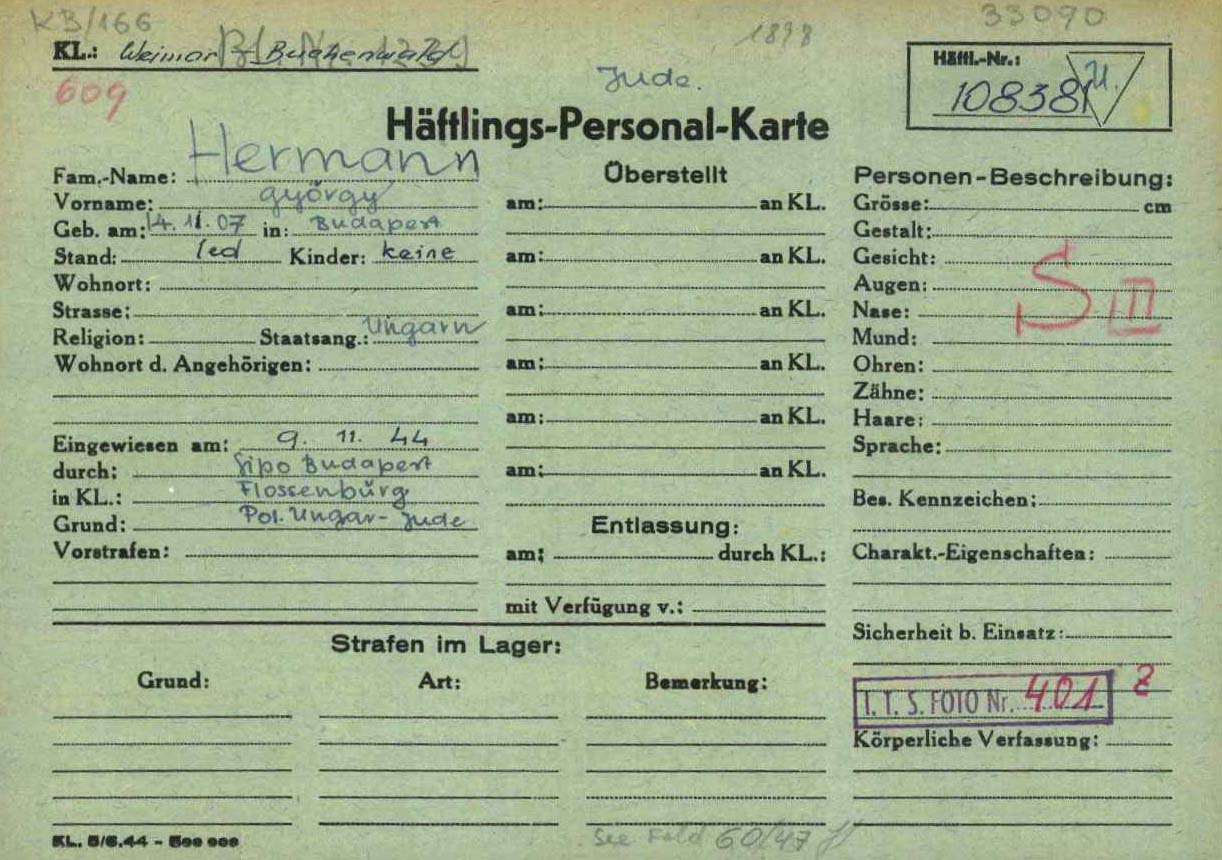 KB/166
1898
33090
KL.: Weimar - Buchenwald
609
Jude.
Häftl.-Nr.:
108381 U.
Häftlings-Personal-Karte
Fam.-Name: Hermann
Vorname: György
Geb. am: 14.11.07 in: Budapest
Stand: led Kinder: keine
Wohnort:
Strasse:
Religion: Staatsang.: Ungarn
Wohnort d. Angehörigen:
Eingewiesen am: 9. 11. 44
durch: Sipo Budapest
in KL.: Flossenbürg
Grund: Pol. Ungar-Jude
Vorstrafen:
Überstellt
am: an KL.
am: an KL.
am: an KL.
am: an KL.
am: an KL.
am: an KL.
Entlassung:
am: durch KL.:
mit Verfügung v.:
Personen-Beschreibung:
Grösse: cm
Gestalt:
Gesicht:
Augen:
Nase:
S III
Mund:
Ohren:
Zähne:
Haare:
Sprache:
Bes. Kennzeichen:
Charakt.-Eigenschaften:
Sicherheit b. Einsatz:
I. T. S. FOTO Nr. 401 Z
Körperliche Verfassung:
Strafen im Lager:
Grund: Art: Bemerkung:
KL. 5/6.44 - 500 000
See Fold 60/47